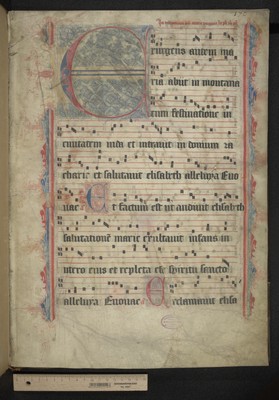 Exurgens autem ma
ria abiit in montana
cum festinatione in
ciuitatem iuda et intrauit in domum za
charie et salutauit elisabeth alleluya Euo
uae Et factum est ut audiuit elisabeth
salutationē marie exultauit infans in
utero eius et repleta est spiritu sancto
alleluya Euouae Exclamauit elisa